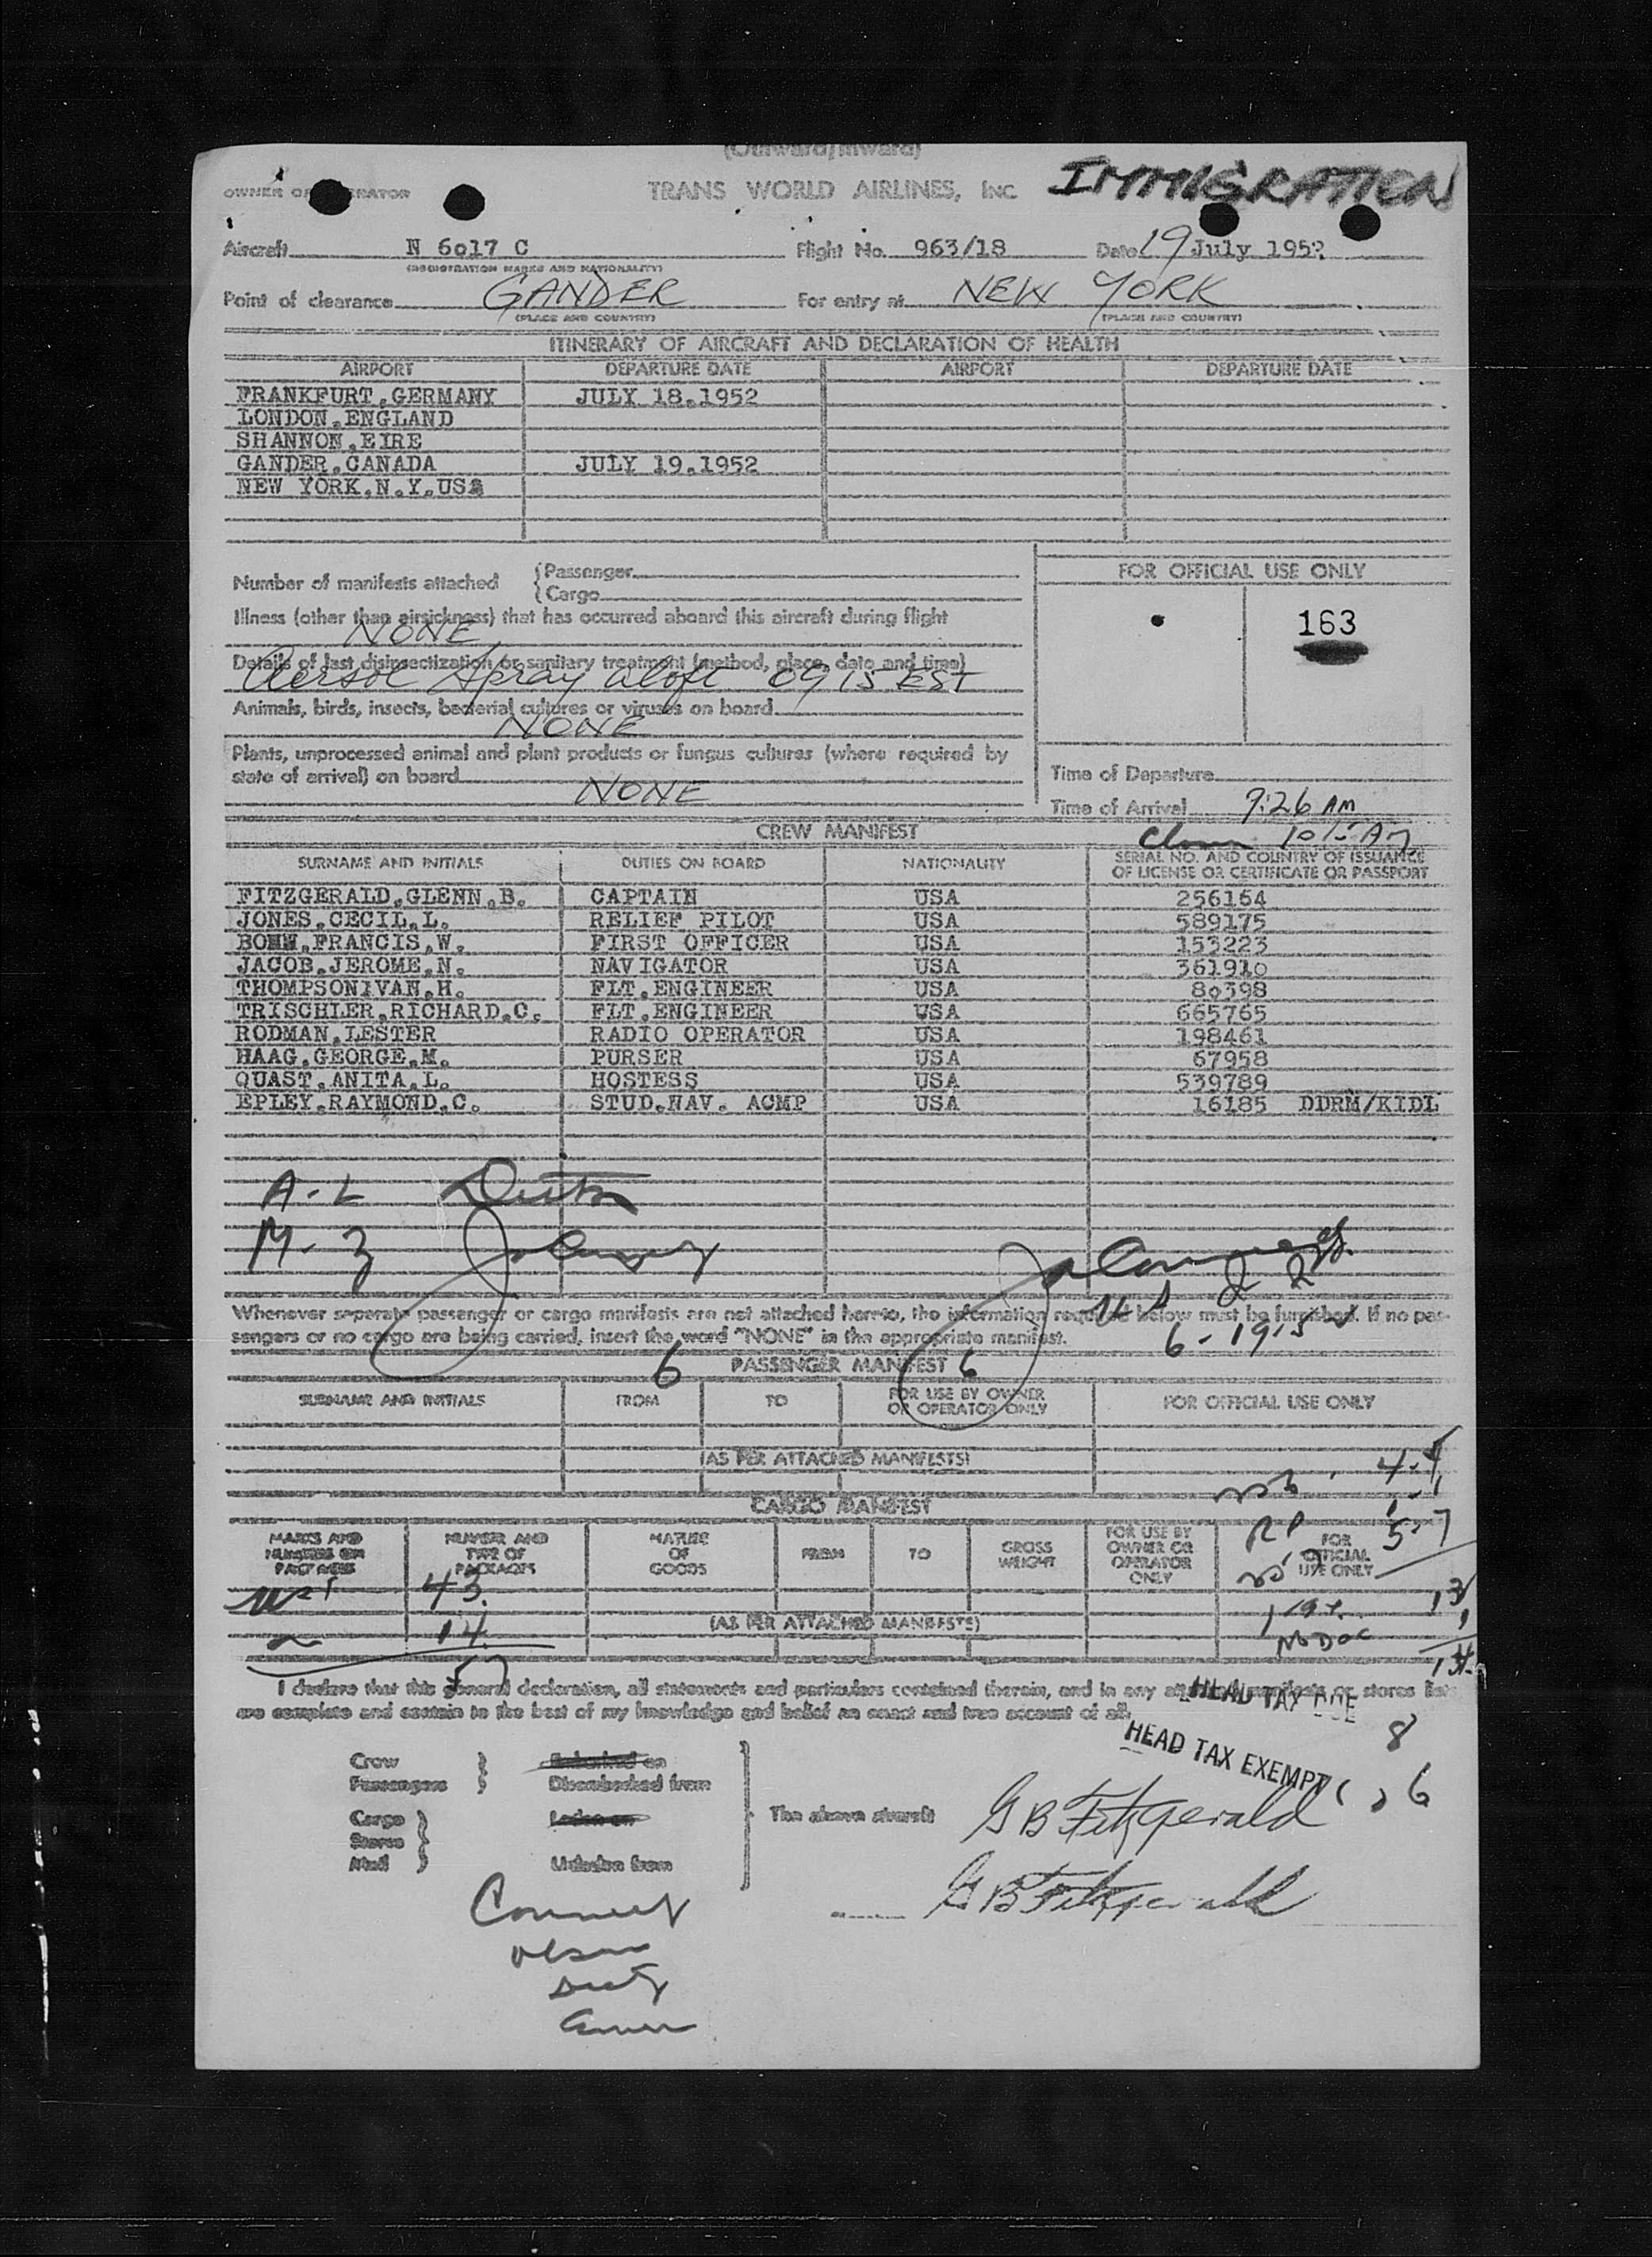 (Outward/Inward)
OWNER OR OPERATOR TRANS WORLD AIRLINES, INC IMMIGRATION
Aircraft N 6017 C Flight No. 963/18 Date 19 July 1952
(REGISTRATION MARKS AND NATIONALITY)
Point of clearance GANDER For entry at NEW YORK
(PLACE AND COUNTRY) (PLACE AND COUNTRY)
ITINERARY OF AIRCRAFT AND DECLARATION OF HEALTH
AIRPORT DEPARTURE DATE AIRPORT DEPARTURE DATE
FRANKFURT,GERMANY JULY 18,1952
LONDON,ENGLAND
SHANNON,EIRE
GANDER,CANADA JULY 19,1952
NEW YORK,N.Y.USA
Number of manifests attached { Passenger
{ Cargo
FOR OFFICIAL USE ONLY
163
Illness (other than airsickness) that has occurred aboard this aircraft during flight
NONE
Details of last disinsectization or sanitary treatment (method, place, date and time)
Aersol Spray aloft 0915 EST
Animals, birds, insects, bacterial cultures or viruses on board
NONE
Plants, unprocessed animal and plant products or fungus cultures (where required by
state of arrival) on board
NONE
Time of Departure
Time of Arrival 9:26 AM
CREW MANIFEST
SURNAME AND INITIALS DUTIES ON BOARD NATIONALITY SERIAL NO. AND COUNTRY OF ISSUANCE
OF LICENSE OR CERTIFICATE OR PASSPORT
FITZGERALD,GLENN,B. CAPTAIN USA 256164
JONES,CECIL,L. RELIEF PILOT USA 589175
FRANCIS,W. FIRST OFFICER USA 153223
JACOB,JEROME,N. NAVIGATOR USA 361910
THOMPSON,IVAN,H. FLT.ENGINEER USA 80398
TRISCHLER,RICHARD,C. FLT.ENGINEER USA 665765
RODMAN,LESTER RADIO OPERATOR USA 198461
HAAG,GEORGE,M. PURSER USA 67958
QUAST,ANITA,L. HOSTESS USA 539789
EPLEY,RAYMOND,C. STUD.NAV. ACMP USA 16185 DDRM/KIDL
A-L
M-Z
Whenever separate passenger or cargo manifests are not attached hereto, the information required below must be furnished. If no pas-
sengers or no cargo are being carried, insert the word "NONE" in the appropriate manifest.
6-19-5
6 PASSENGER MANIFEST 6
SURNAME AND INITIALS FROM TO FOR USE BY OWNER
OR OPERATOR ONLY FOR OFFICIAL USE ONLY
(AS PER ATTACHED MANIFESTS)
CARGO MANIFEST
MARKS AND
NUMBERS ON
PACKAGES NUMBER AND
TYPE OF
PACKAGES NATURE
OF
GOODS FROM TO GROSS
WEIGHT FOR USE BY
OWNER OR
OPERATOR
ONLY FOR
OFFICIAL
USE ONLY
43
14
57
(AS PER ATTACHED MANIFESTS)
No Doc
I declare that this general declaration, all statements and particulars contained therein, and in any attached manifests or stores list
are complete and contain to the best of my knowledge and belief an exact and true account of all:
HEAD TAX DUE 8
HEAD TAX EXEMPT 6
Crew } Embarked on
Passengers } Disembarked from
Cargo } Laden on
Stores }
Mail } Unladen from
The above aircraft
G B Fitzgerald
G B Fitzgerald